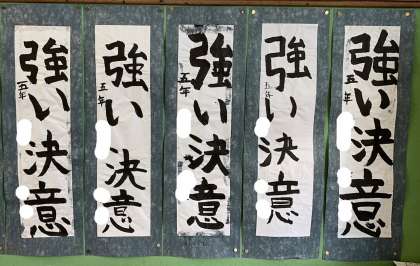 強い決意
五年
強い決意
五年
強い決意
五年
強い決意
五年
強い決意
五年